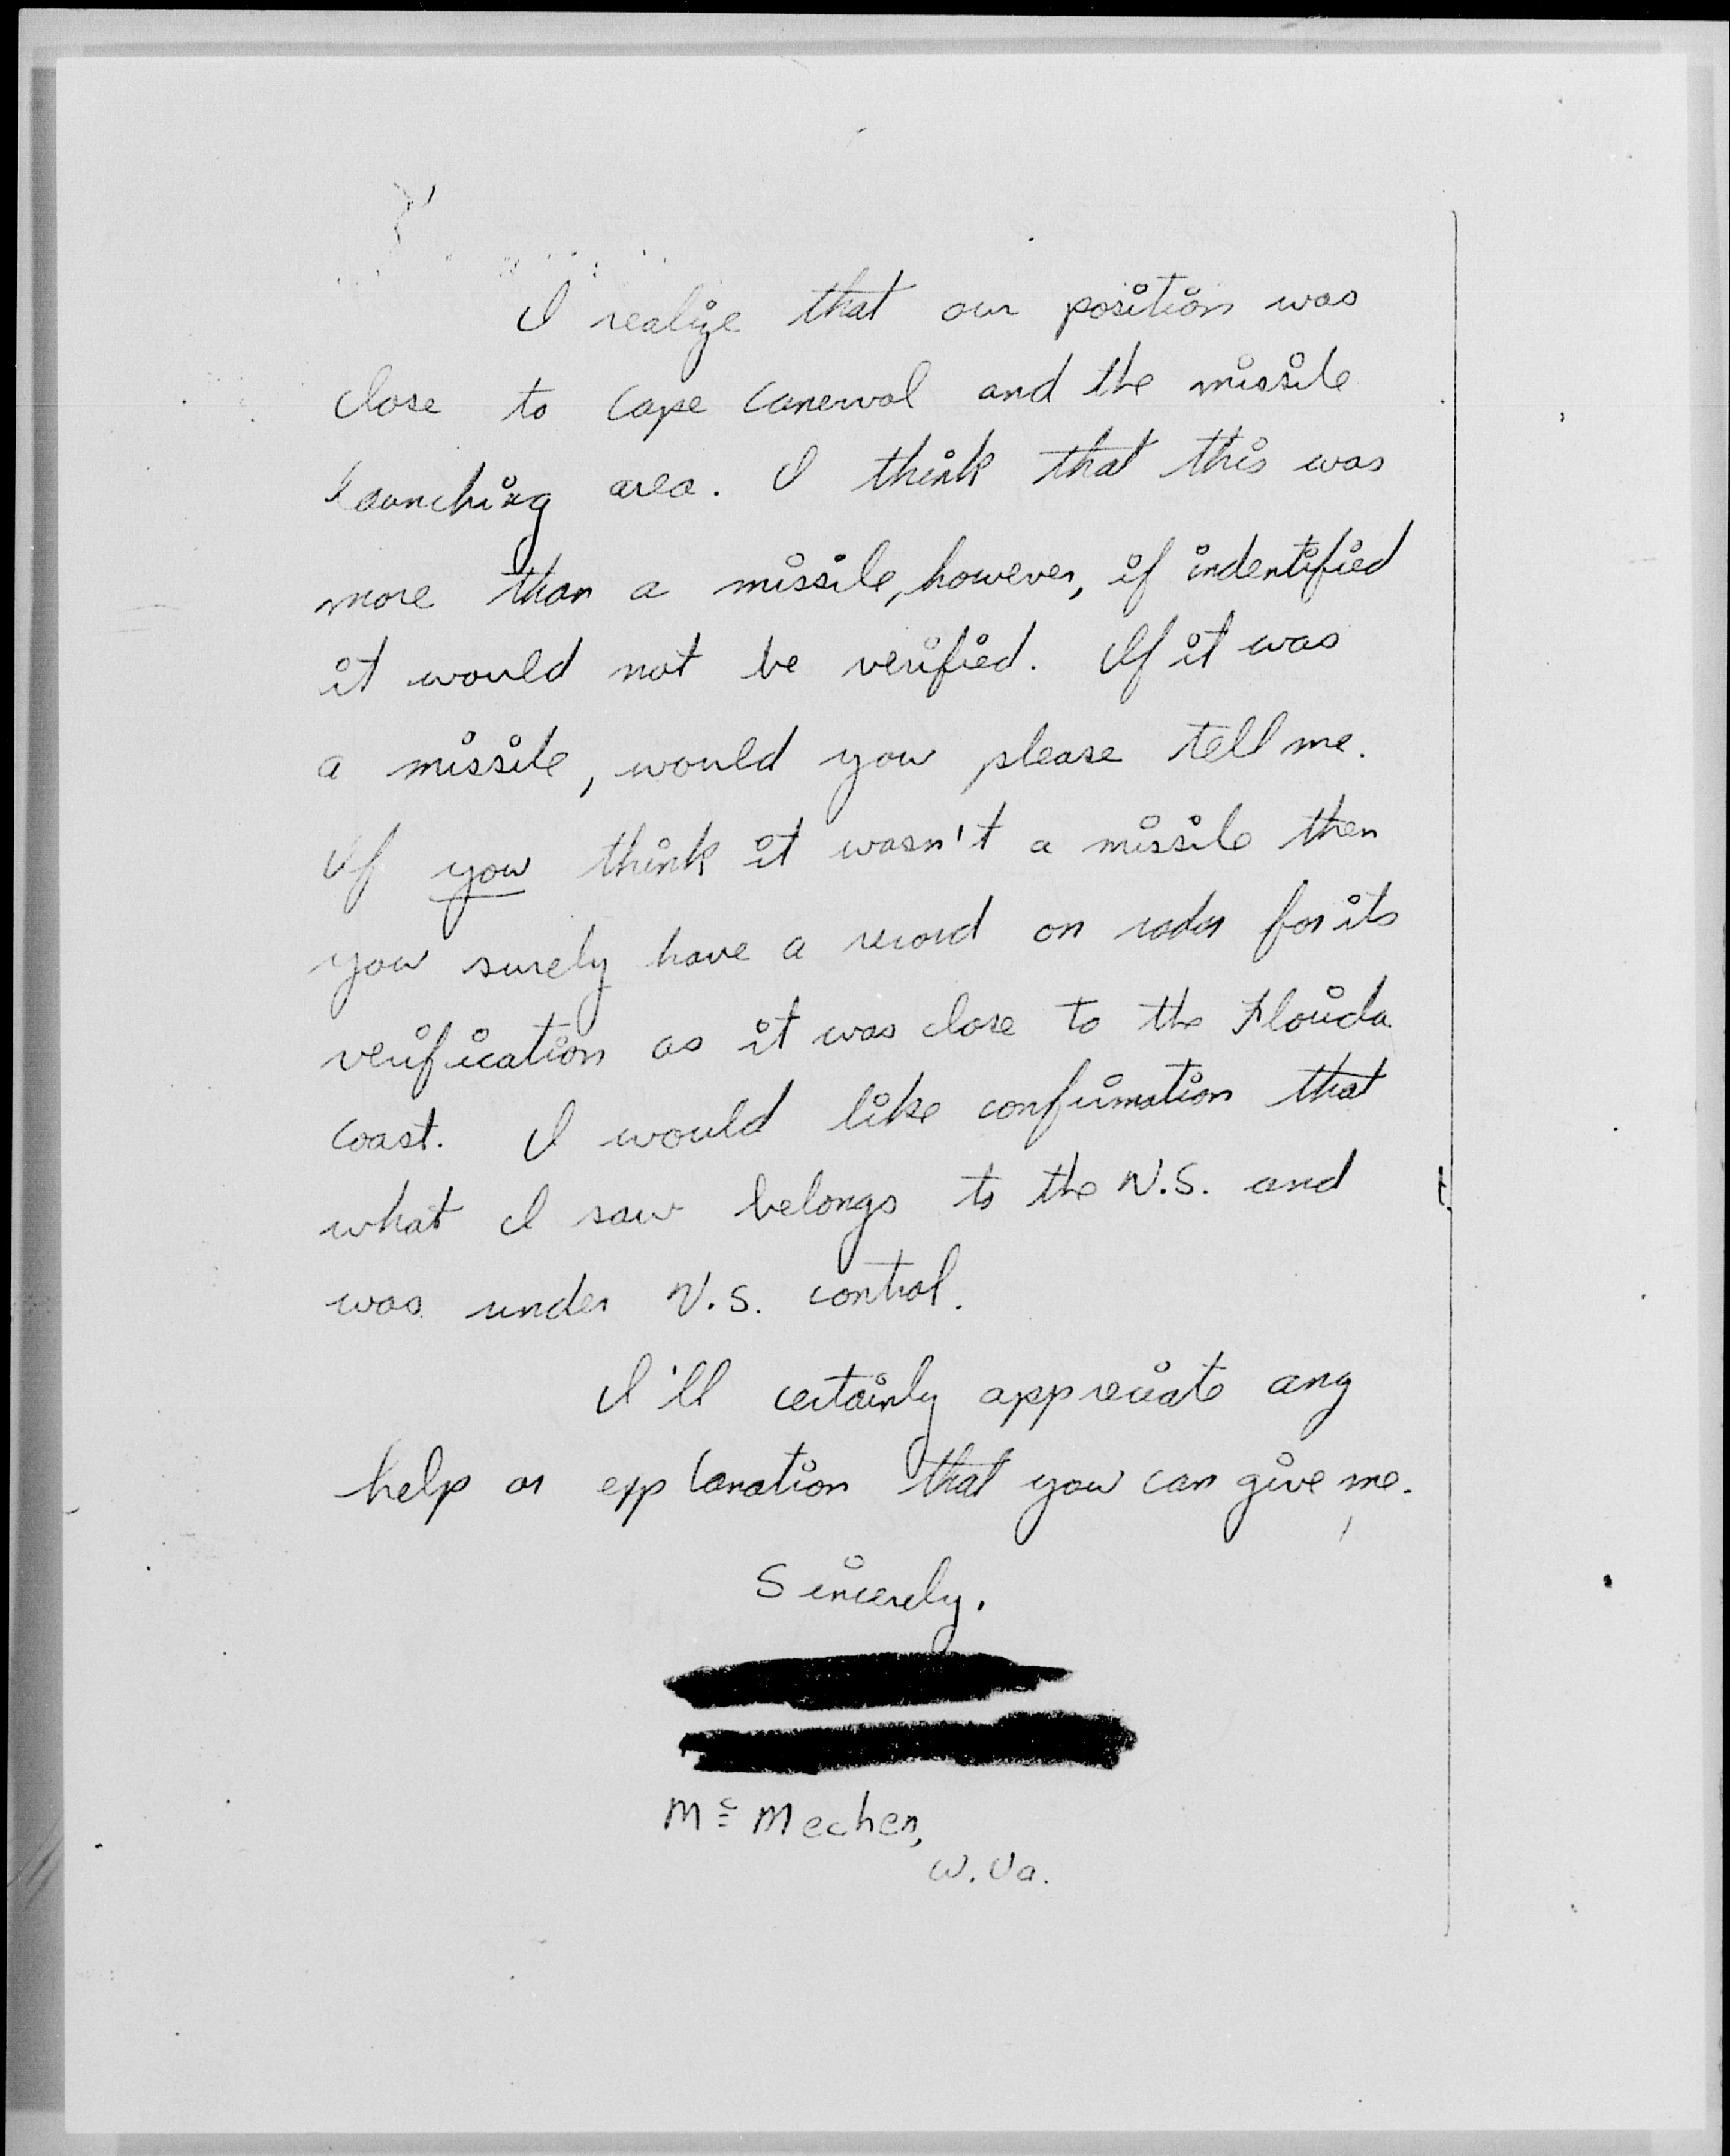 I realize that our position was
close to Cape Canerval and the missile
launching area. I think that this was
more than a missile, however, if indentified
it would not be verified. If it was
a missile, would you please tell me.
If you think it wasn't a missile then
you surely have a record on radar for its
verification as it was close to the Florida
coast. I would like confirmation that
what I saw belongs to the U.S. and
was under U.S. control.
I'll certainly appreciate any
help or explanation that you can give me.
Sincerely,
Mc Mechen,
W. Va.